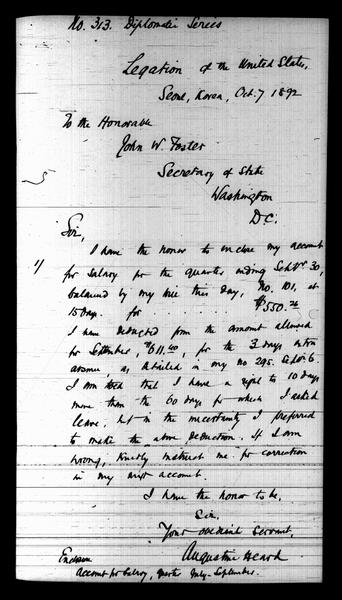 No. 313. Diplomatic Series
Legation of the United States,
Seoul, Korea, Oct. 7 1892
To the Honorable
John W. Foster
Secretary of State
Washington
D.C.
Sir,
I have the honor to enclose my account
for salary for the quarter ending Septbr 30,
balanced by my bill this day, No. 101, at
15 days. for . . . . . . . $550.
I have deducted from the amount allowed
for September, 611.40, for the 3 days
absence, as detailed in my No 295. Septbr 6.
I am told that I have a right to 10 days
more than the 60 days for which I asked
leave, but in the uncertainty I preferred
to make the above deduction. If I am
wrong, kindly instruct me for correction
in my next account.
I have the honor to be,
Sir,
Your obedient servant,
Augustine Heard
Enclosure
Account for Salary, July-September.